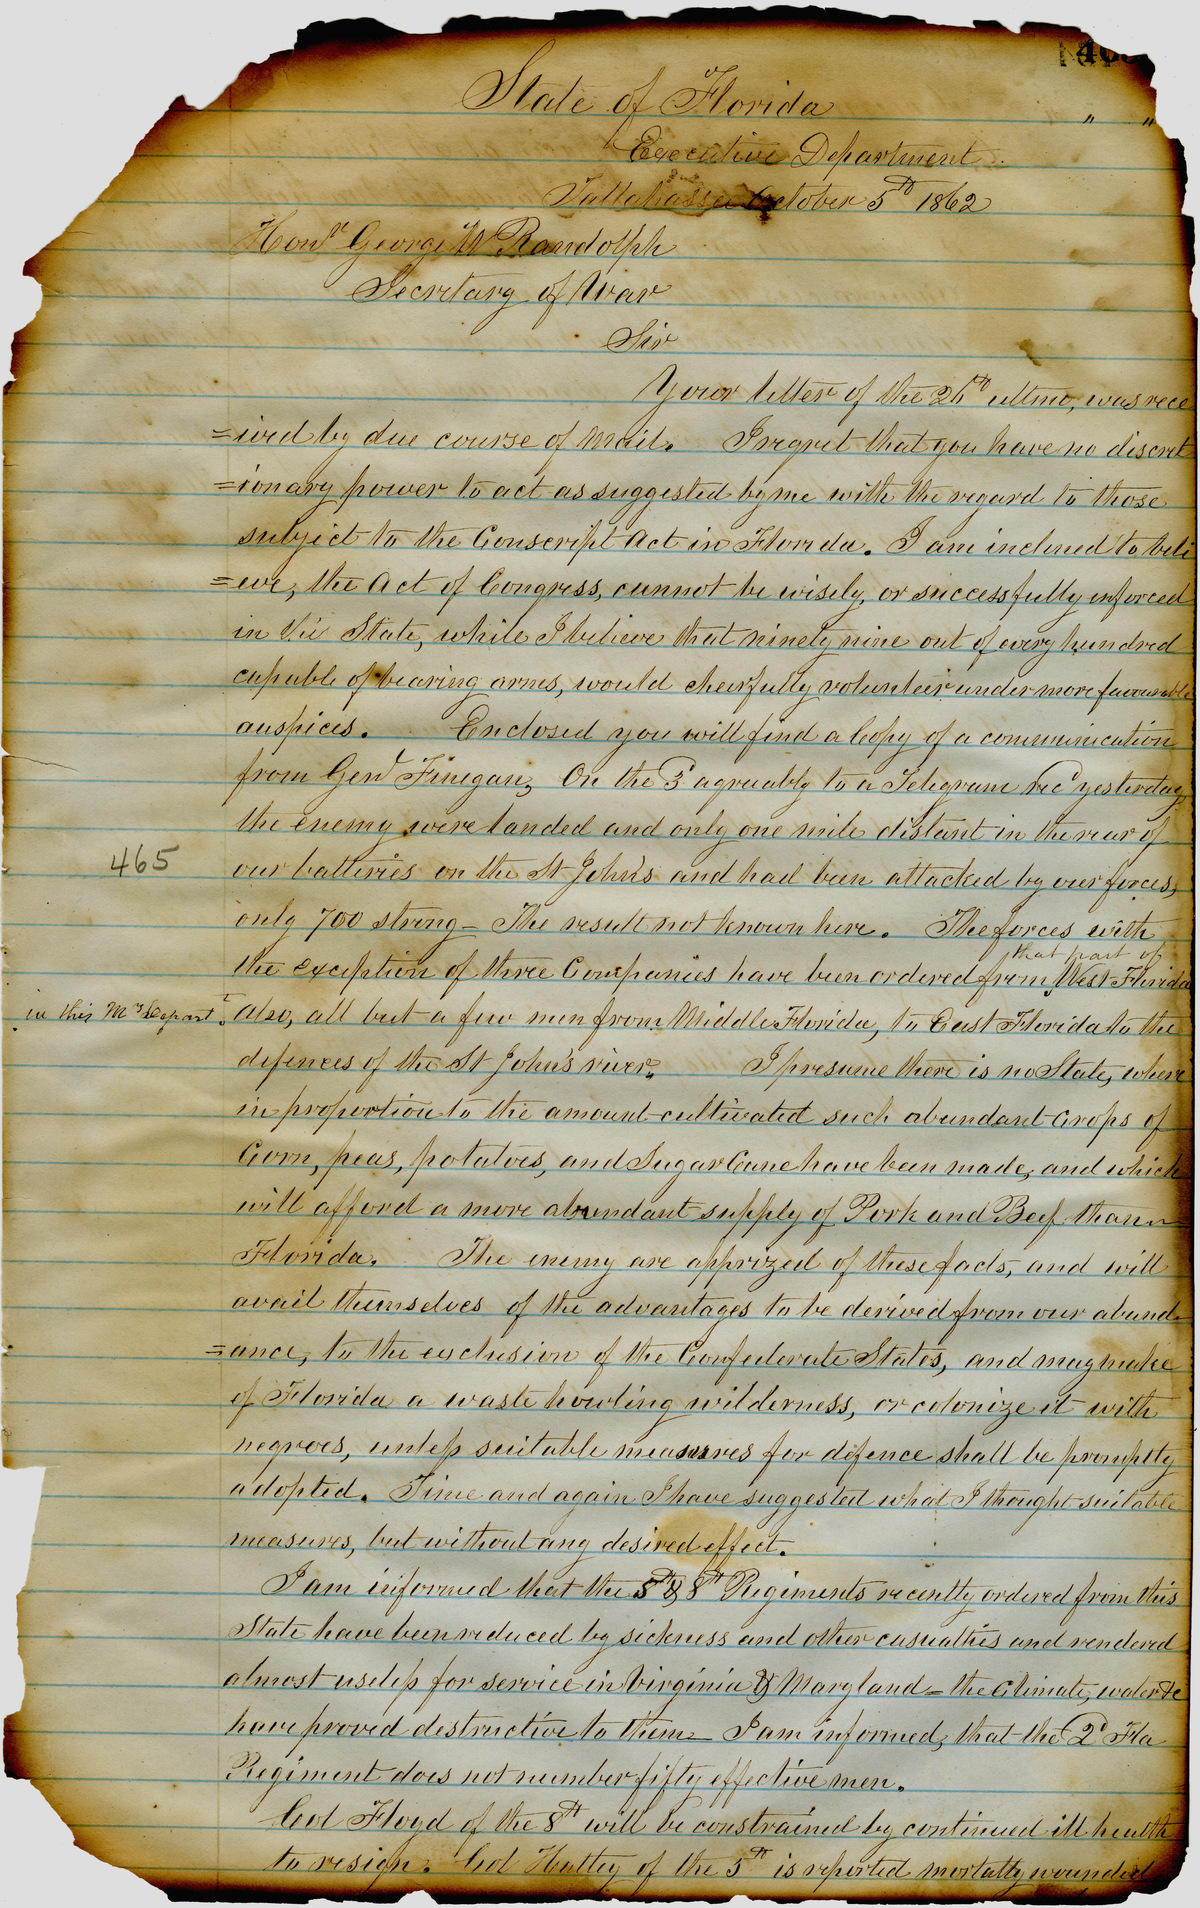 State of Florida
" "
Executive Department
Tallahassee October 5th 1862
Honle George W Randolph
Secretary of War
Sir
Your letter of the 26th ultmo, was rece
=ived by due course of mail. I regret that you have no discret
=ionary power to act as suggested by me with the regard to those
subject to the Conscript Act in Florida. I am inclined to beli
=eve, the Act of Congress, cannot be wisely, or successfully enforced
in this State, while I believe that ninety nine out of every hundred
capable of bearing arms, would cheerfully volunteer under more favourable
auspices. Enclosed you will find a Copy of a communication
from Genl Finegan, On the 3d agreeably to a Telegram rec'd yesterday,
the enemy were landed and only one mile distant in the rear of
465
our batteries on the St John's and had been attacked by our forces,
only 700 strong - The result not known here. The forces with
that part of
the exception of three Companies have been ordered from West Florida
in this My Depart.t Also, all but a few men from Middle Florida, to East Florida to the
defences of the St John's river. I presume there is no State, where
in proportion to the amount cultivated such abundant Crops of
Corn, peas, potatoes, and Sugar Cane have been made, and which
will afford a more abundant supply of Pork and Beef than
Florida. The enemy are apprized of these facts, and will
avail themselves of the advantages to be derived from our abund
=ance, to the exclusion of the Confederate States, and may make
of Florida a waste howling wilderness, or colonize it with
negroes, unless suitable measures for defence shall be promptly
adopted. Time and again I have suggested what I thought suitable
measures, but without any desired effect.
I am informed that the 5th & 8th Regiments recently ordered from this
State have been reduced by sickness and other casualties and rendered
almost useless for service in Virginia & Maryland = the Climate, water &c
have proved destructive to them - I am informed, that the 2d Fla
Regiment does not number fifty effective men.
Col Floyd of the 8th will be constrained by continued ill health
to resign. Col Hatley of the 5th is reported mortally wounded